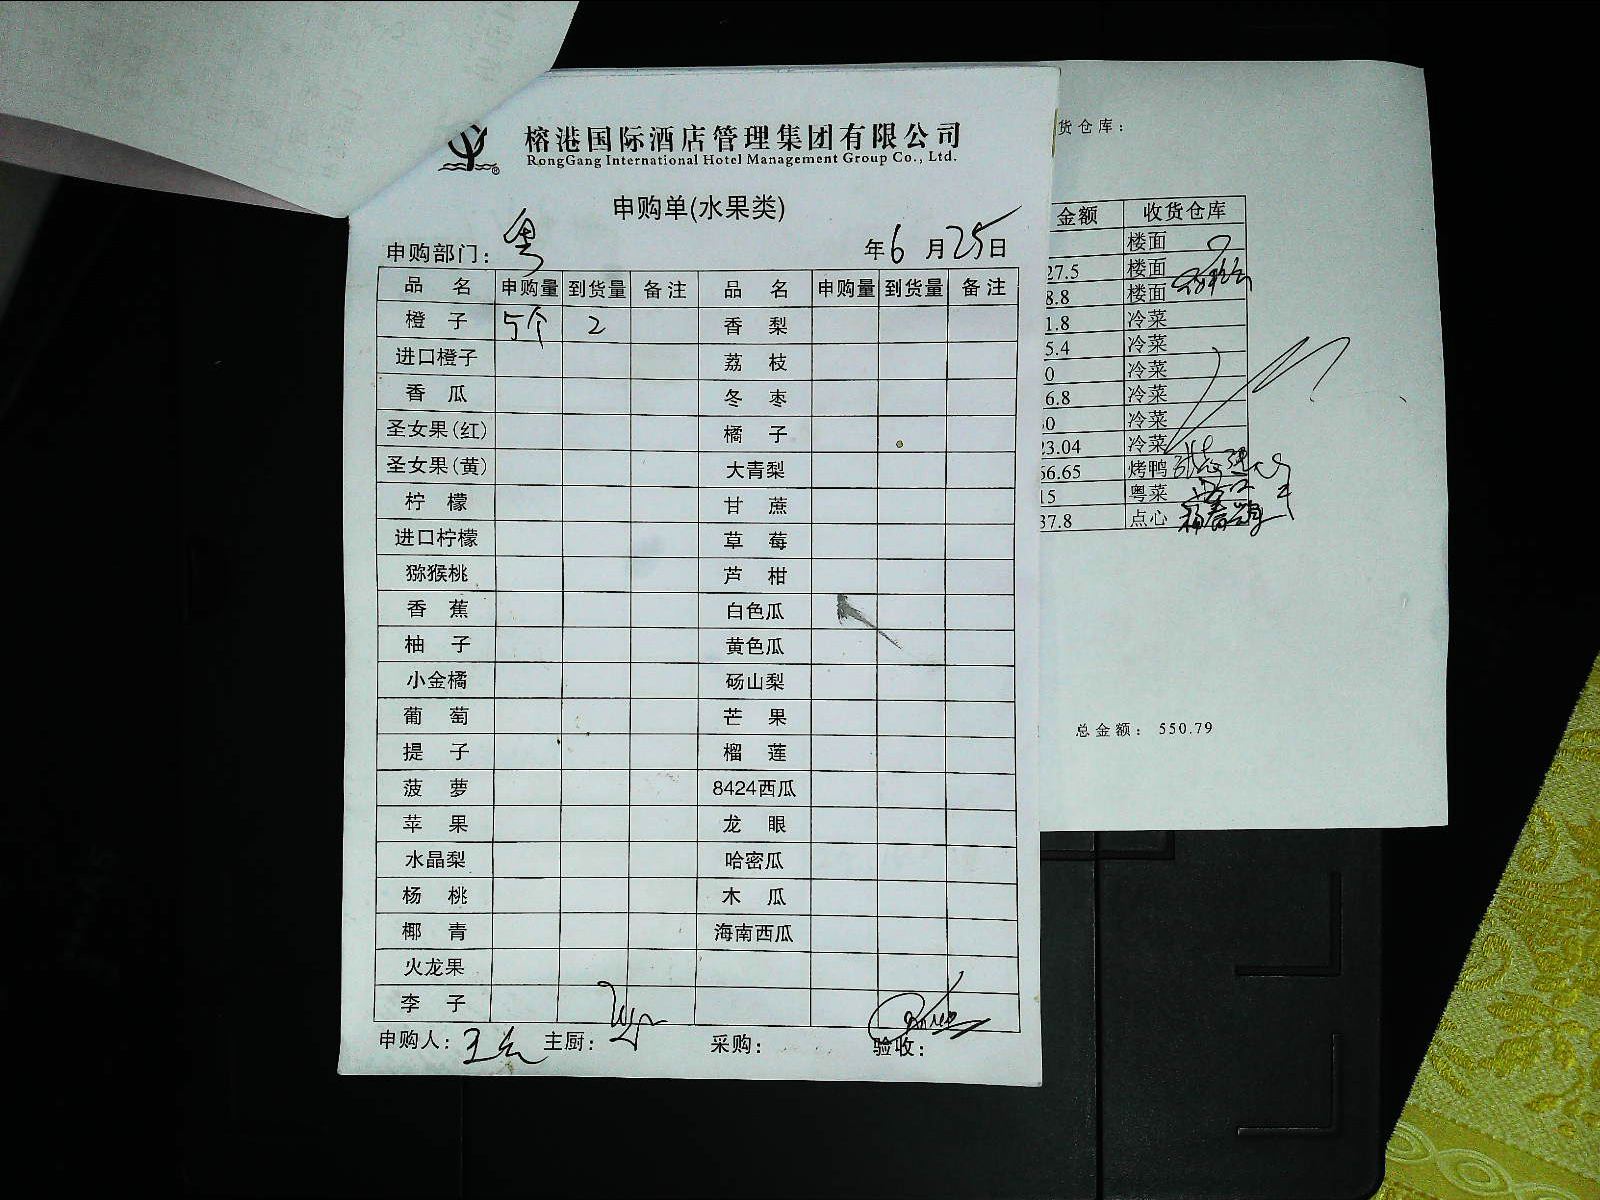 榕港国际酒店管理集团有限公司
RongGang International Hotel Management Group Co., Ltd.
®
申购单(水果类)
申购部门: 粤 年6月25日
品名 申购量 到货量 备注 品名 申购量 到货量 备注
橙子 5个 2 香梨
进口橙子 荔枝
香瓜 冬枣
圣女果(红) 橘子
圣女果(黄) 大青梨
柠檬 甘蔗
进口柠檬 草莓
猕猴桃 芦柑
香蕉 白色瓜
柚子 黄色瓜
小金橘 砀山梨
葡萄 芒果
提子 榴莲
菠萝 8424西瓜
苹果 龙眼
水晶梨 哈密瓜
杨桃 木瓜
椰青 海南西瓜
火龙果
李子
申购人: 主厨: 采购: 验收:
货仓库:
金额 收货仓库
楼面
27.5 楼面
8.8 楼面
1.8 冷菜
5.4 冷菜
0 冷菜
6.8 冷菜
冷菜
23.04 冷菜
66.65 烤鸭
15 粤菜
37.8 点心
总金额: 550.79